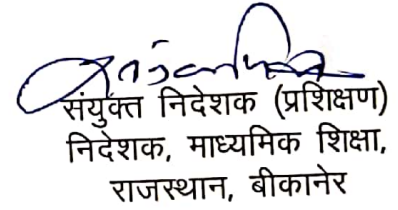 संयुक्त निदेशक (प्रशिक्षण)
निदेशक, माध्यमिक शिक्षा,
राजस्थान, बीकानेर